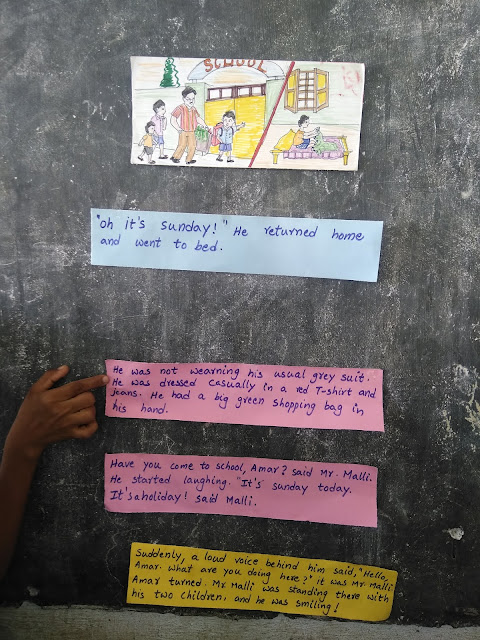 SCHOOL
"oh it's sunday!" He returned home
and went to bed.
He was not wearning his usual grey suit.
He was dressed casually in a red T-shirt and
jeans. He had a big green shopping bag in
his hand.
Have you come to school, Amar? said Mr. Malli.
He started laughing. "It's sunday today.
It's aholiday! said Malli.
Suddenly, a loud voice behind him said, "Hello,
Amar. What are you doing here?" it was Mr. Malli
Amar turned. Mr Malli was standing there with
his two children, and he was smiling!